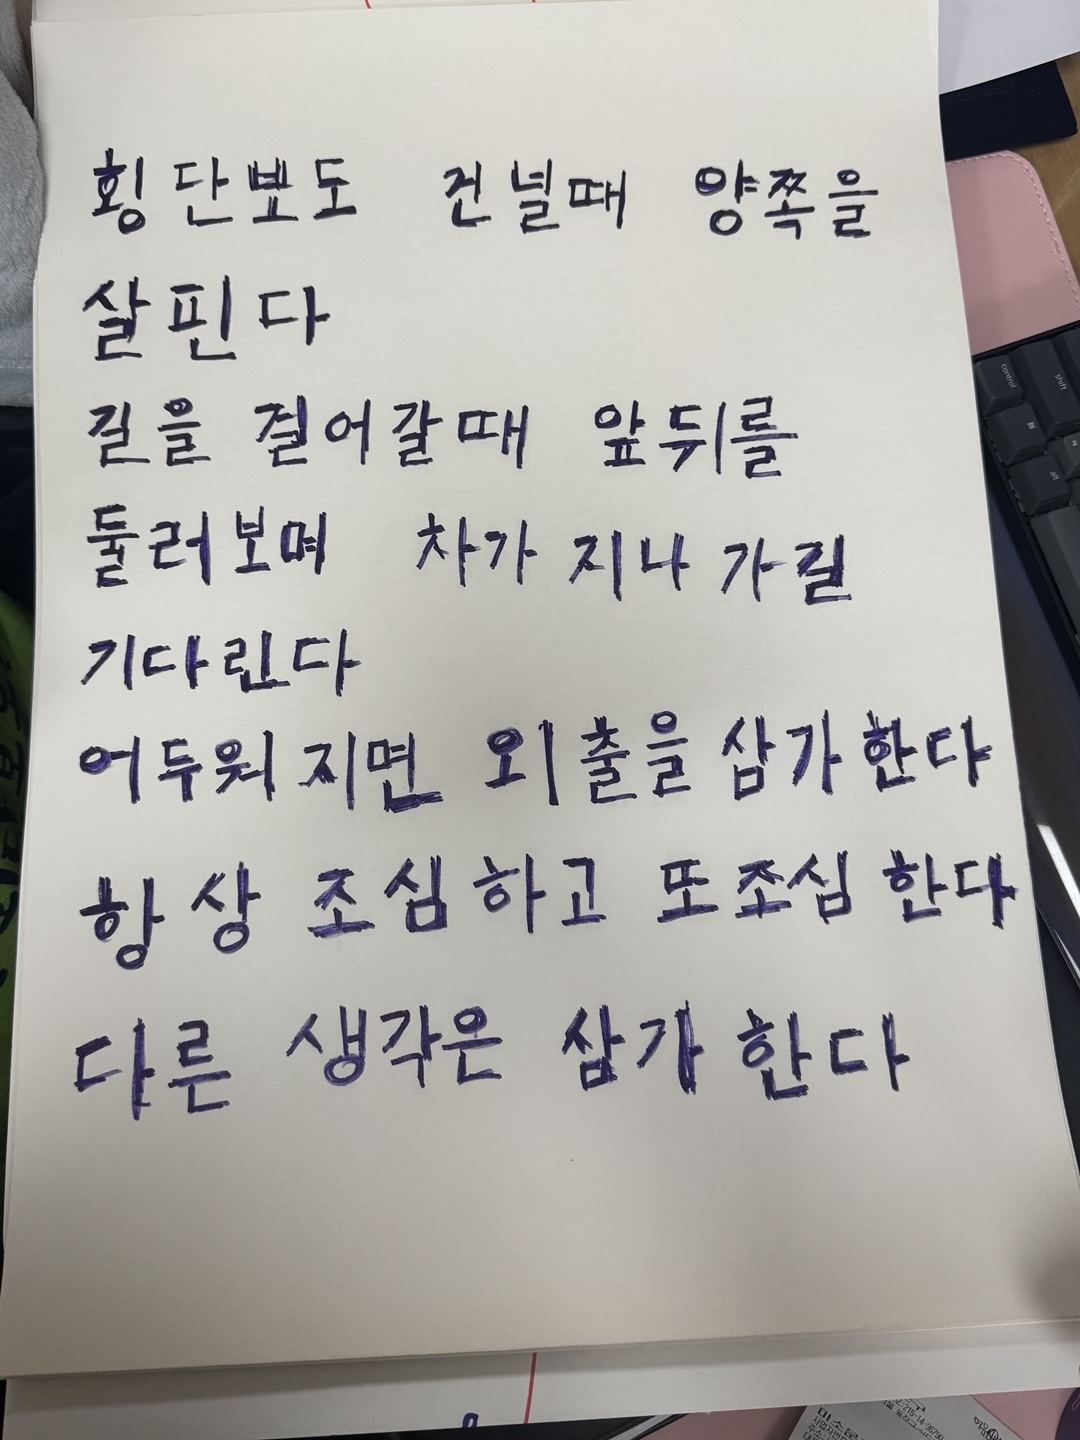 횡단뵤도 건널때 양쪽을
살핀다
길을 걸어갈때 앞뒤를
둘러보며 차가 지나 가길
기다린다
어두워지면 외출을 삼가한다
항상 조심하고 또조심 한다
다른 생각은 삼가 한다
control
shift
alt